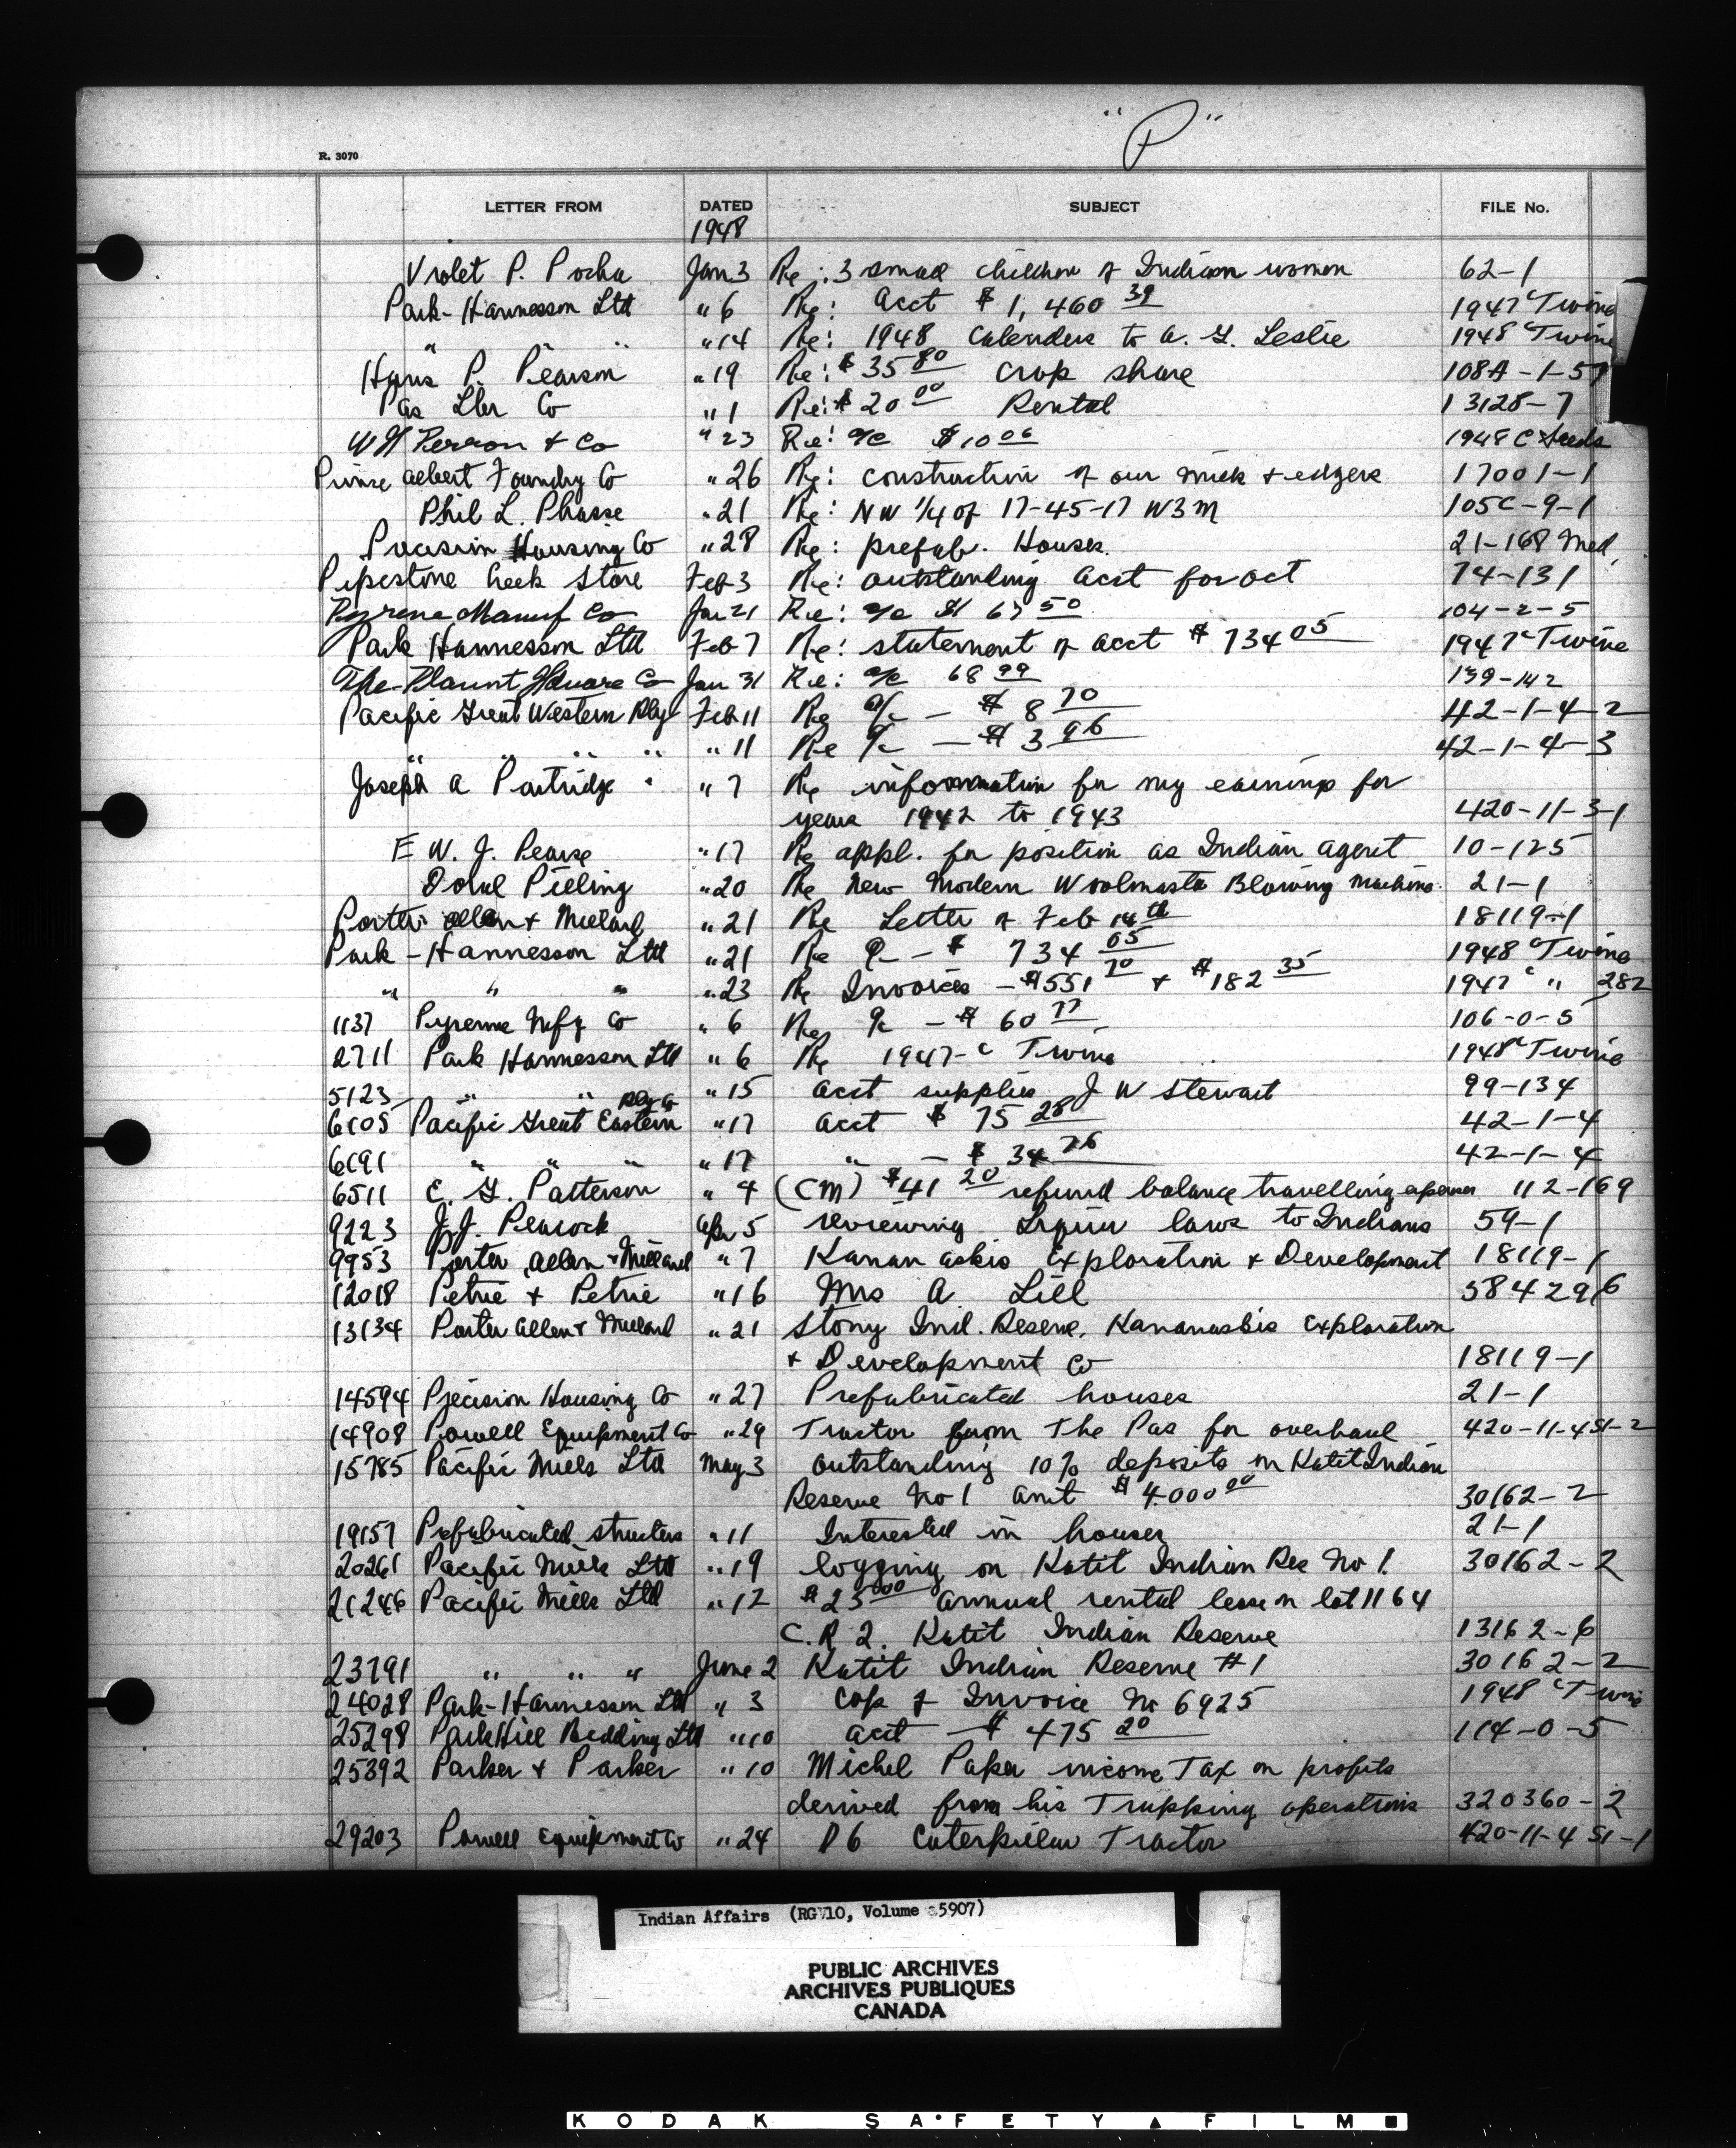 "P"
R. 3070
LETTER FROM DATED SUBJECT FILE No.
1948
Violet P. Pocha Jan 3 Re: 3 small children of Indian women 62-1
Park-Hannesson Ltd " 6 Re: Acct $1,460 39 1947 "Twine
" " " 14 Re: 1948 Calenders to A. G. Leslie 1948 "Twine
Hans P. Pearson " 19 Re: $35 80 crop share 108A-1-5
Pas Lbr Co " 1 Re: $20 00 Rental 13128-7
W H Perron + Co " 23 Re: a/c $10 06 1948 C Seeds
Prince Albert Foundry Co " 26 Re: construction of our + edgers 17001-1
Phil L. Phasse " 21 Re: NW 1/4 of 17-45-17 W3M 105C-9-1
Precision Housing Co " 28 Re: prefab. Houses. 21-168 Med.
Pipestone Creek Store Feb 3 Re: outstanding acct for Oct 74-131
Pyrene Manuf Co Jan 21 Re: a/c $ 67 50 104-2-5
Park Hannesson Ltd Feb 7 Re: statement of acct $734 05 1947 "Twine
The Blount Square Co Jan 31 Re: a/c 68 99 139-142
Pacific Great Western Rly Feb 11 Re a/c - $8 70 42-1-4-2
" " " " " 11 Re a/c - $3 96 42-1-4-3
Joseph A Partridge " 7 Re information for my earnings for
years 1942 to 1943 420-11-3-1
E W. J. Pearse " 17 Re appl. for position as Indian Agent 10-125
Pieling " 20 Re New Modern Woolmaster Blowing Machine 21-1
Porter Allen + Millard " 21 Re Letter of Feb 14th 18119-1
Park-Hannesson Ltd " 21 Re a/c - $734 05 1948 "Twine
" " " " 23 Re Invoices - $551 70 + $182 35 1947 " " 282
1137 Pyrene Mfg Co " 6 Re a/c - $60 77 106-0-5
2711 Park Hannesson Ltd " 6 Re 1947-c Twine 1948 "Twine
5123 " " " 15 Acct supplies J W Stewart 99-134
6105 Pacific Great Eastern Rly Co " 17 Acct $75 28 42-1-4
6191 " " " " 17 " - $34 76 42-1-4
6511 E. G. Patterson " 4 (CM) $41 20 refund balance travelling expenses 112-169
9223 J. J. Peacock Apr 5 reviewing Liquor laws to Indians 59-1
9953 Porter Allen + Millard " 7 Kananaskis Exploration + Development 18119-1
12018 Petrie + Petrie " 16 Mrs A. Lill 584296
13134 Porter Allen + Millard " 21 Stony Ind. Reserve, Kananaskis Exploration
+ Development Co 18119-1
14594 Precision Housing Co " 27 Prefabricated houses 21-1
14908 Powell Equipment Co " 29 Tractor from The Pas for overhaul 420-11-4 S1-2
15785 Pacific Mills Ltd May 3 Outstanding 10% deposits on Katit Indian
Reserve No 1 amt $4000 00 30162-2
19157 Prefabricated structers " 11 Interested in houses 21-1
20261 Pacific Mills Ltd " 19 logging on Katit Indian Res No 1. 30162-2
21246 Pacific Mills Ltd " 12 $25 00 annual rental lease on lot 1164
C.R 2. Katit Indian Reserve 13162-6
23791 " " " June 2 Katit Indian Reserve #1 30162-2
24028 Park-Hannesson Ltd " 3 Cop of Invoice No 6925 1948 "Twine
25298 ParkHill Bedding Ltd " 10 acct - $475 20 114-0-5
25392 Parker + Parker " 10 Michel Papa income Tax on profits
derived from his Trapping operations 320360-2
29203 Powell Equipment Co " 24 D6 Caterpillar Tractor 420-11-4 S1-1
Indian Affairs (RG 10, Volume 5907)
PUBLIC ARCHIVES
ARCHIVES PUBLIQUES
CANADA
KODAK SAFETY FILM